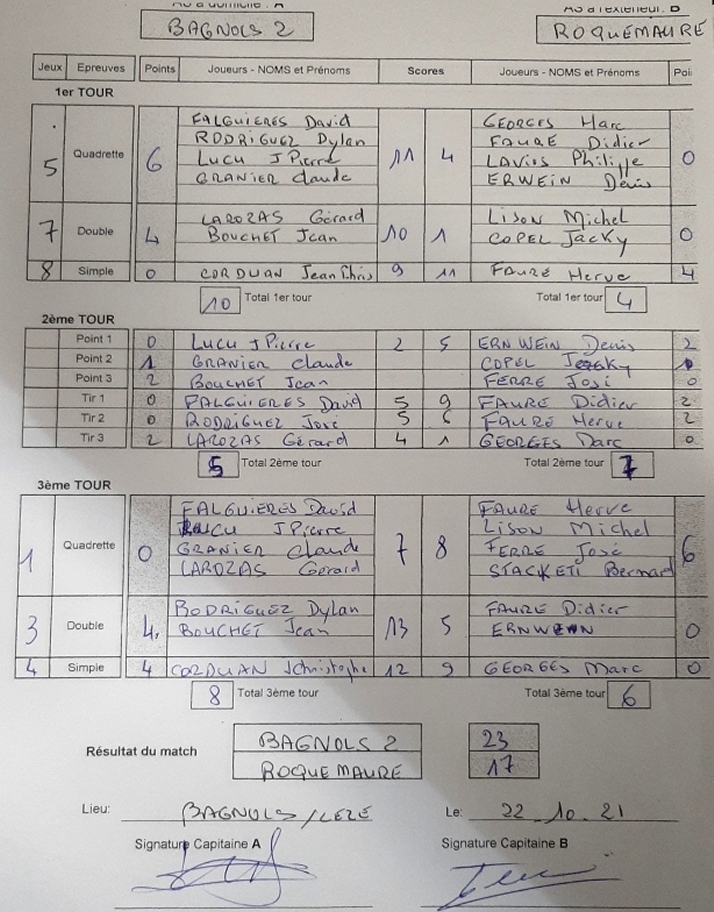 BAGNOLS 2 ROQUEMAURE
Jeux Epreuves Points Joueurs - NOMS et Prénoms Scores Joueurs - NOMS et Prénoms Poi
1er TOUR
5 Quadrette 6 FALGUIERES David 11 4 GEORGES Marc 0
RODRIGUEZ Dylan FAURE Didier
LUCU J Pierre LAVIOS Philippe
GRANIER Claude ERWEIN Denis
7 Double 4 LAROZAS Gérard 10 1 LISON Michel 0
BOUCHET Jean COPEL Jacky
8 Simple 0 CORDUAN Jean Chris 9 11 FAURE Herve 4
10 Total 1er tour Total 1er tour 4
2ème TOUR
Point 1 0 LUCU J Pierre 2 5 ERNWEIN Denis 2
Point 2 1 GRANIER Claude COPEL 1
Point 3 2 BOUCHET Jean FERRE José 0
Tir 1 0 FALGUIERES David 5 9 FAURE Didier 2
Tir 2 0 RODRIGUEZ José 5 6 FAURE Herve 2
Tir 3 2 LAROZAS Gérard 4 1 GEORGES Darc 0
5 Total 2ème tour Total 2ème tour 7
3ème TOUR
1 Quadrette 0 FALGUIERES David 7 8 FAURE Herve 6
LUCU J Pierre LISON Michel
GRANIER Claude FERRE José
LAROZAS Gérard STACKETI Bernard
3 Double 4 RODRIGUEZ Dylan 13 5 FAURE Didier 0
BOUCHET Jean ERNWEIN
4 Simple 4 CORDUAN JChristophe 12 9 GEORGES Marc 0
8 Total 3ème tour Total 3ème tour 6
Résultat du match BAGNOLS 2 23
ROQUEMAURE 17
Lieu: BAGNOLS/CEZE Le: 22.10.21
Signature Capitaine A Signature Capitaine B